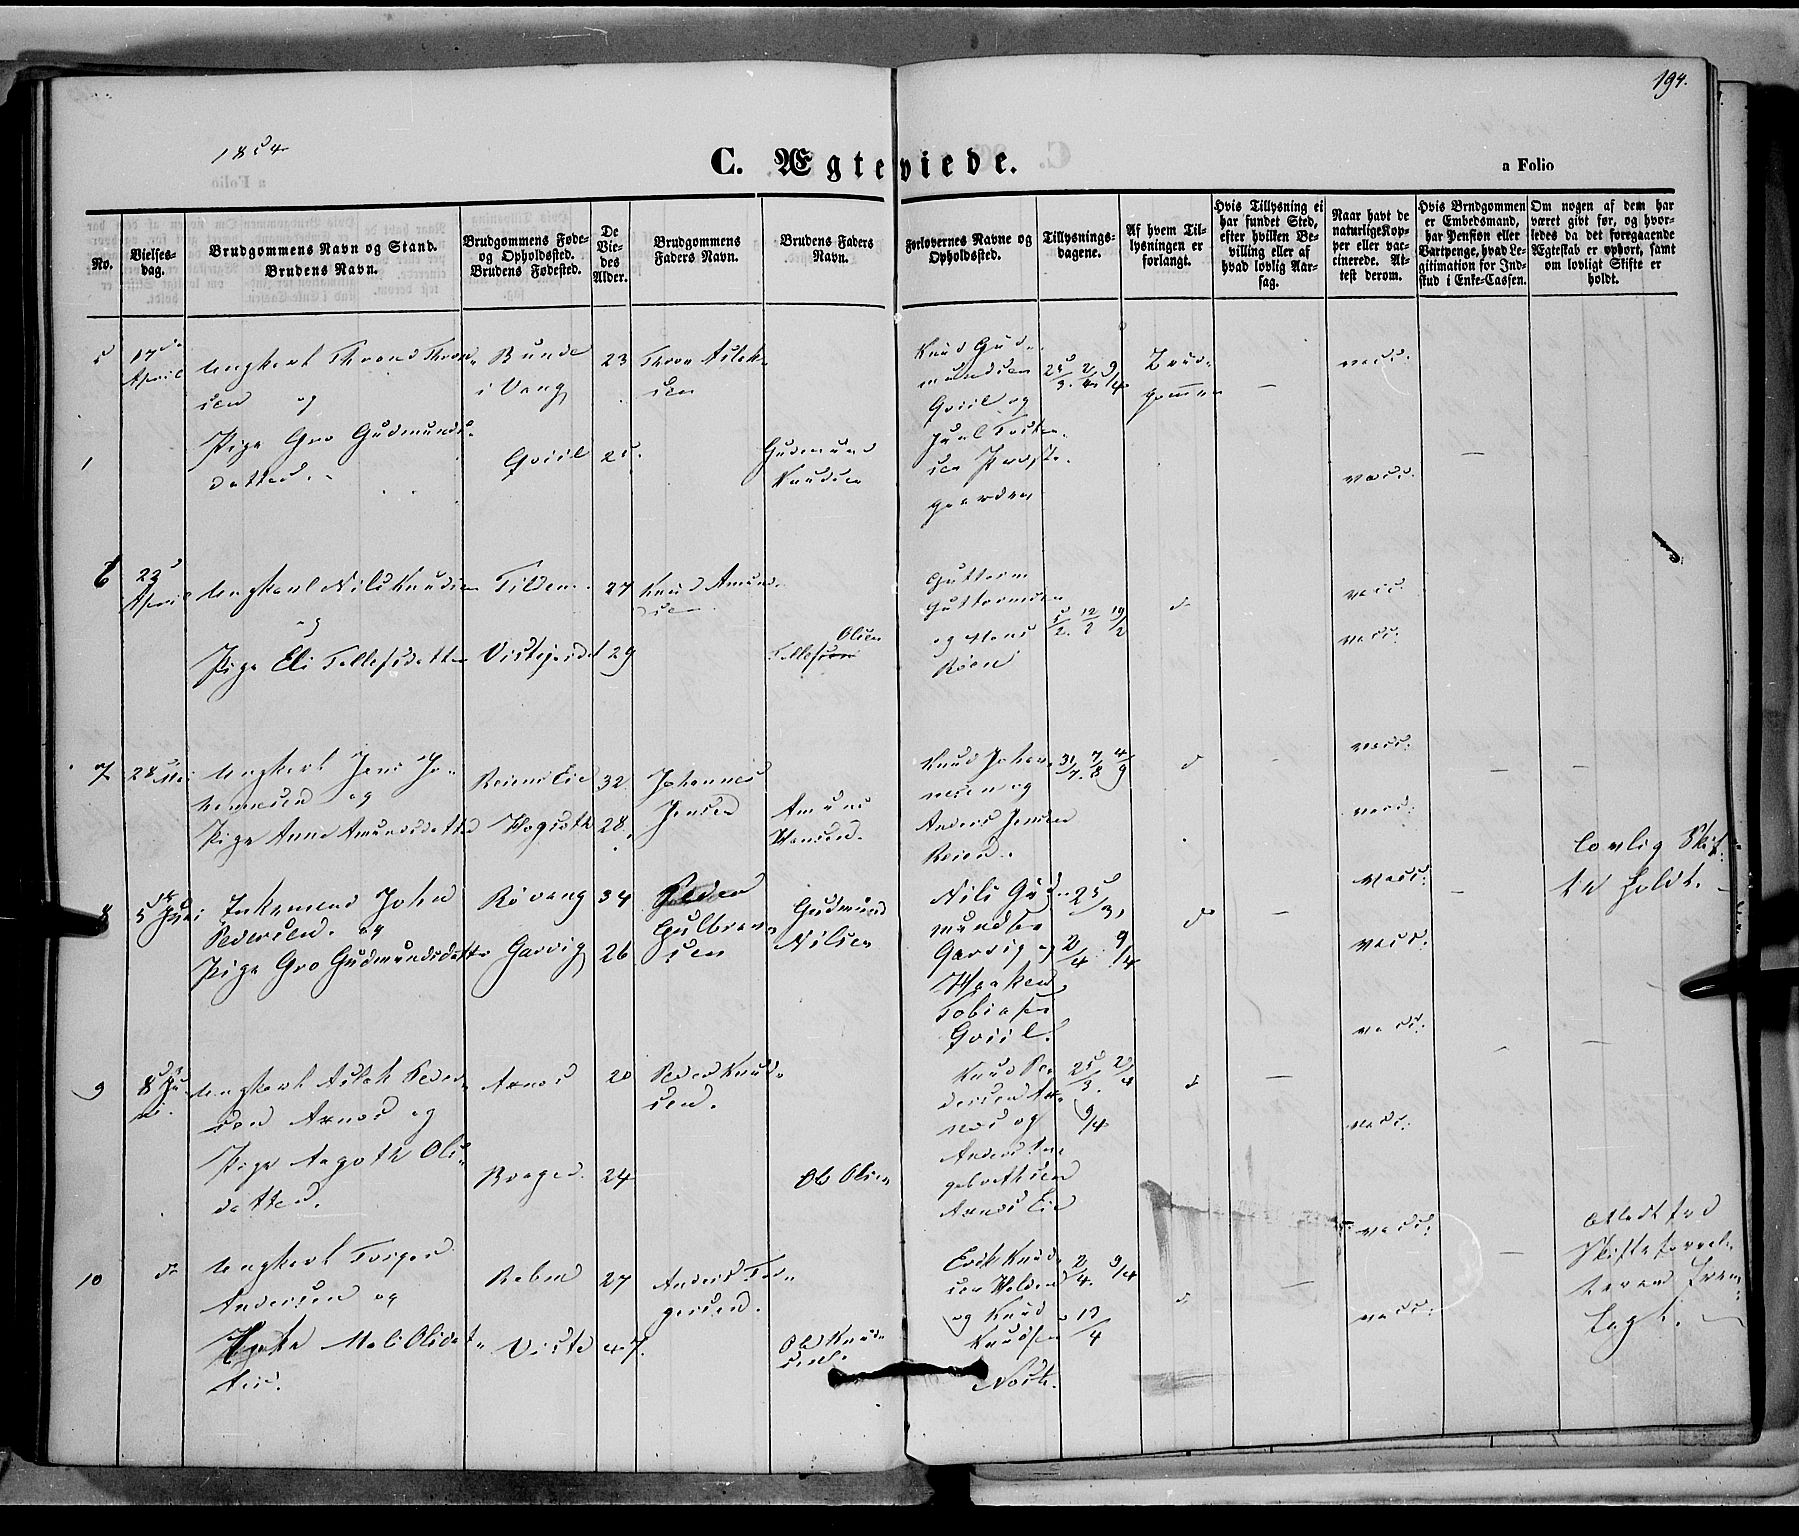 194.
1854
C. Ægteviede.
a Folio
No.
Vielses-
dag.
Brudgommens Navn og Stand.
Brudens Navn.
Brudgommens Føde-
og Opholdssted.
Brudens Fødested.
De
Vie-
des
Alder.
Brudgommens
Faders Navn.
Brudens Faders
Navn.
Forlovernes Navne og
Opholdssted.
Tillysnings-
dagene.
Af hvem Til-
lysningen er
forlangt.
Hvis Tillysning ei
har fundet Sted,
efter hvilken Be-
villing eller af
hvad lovlig Aar-
sag.
Naar havt de
naturlige Kop-
per eller vac-
cinerede. At-
test derom.
Hvis Brudgommen
er Embedsmand,
har Pension eller
Vartpenge, hvad Le-
gitimation for Ind-
skud i Enke-Cassen.
Om nogen af dem har
været givt før, og hvor-
ledes da det foregaaende
Ægteskab er ophørt, samt
om lovligt Skifte er
holdt.
5
17de
April
Ungkarl Thrond Thron-
sen og
Pige Gro Gudmunds-
datter.
Bunde
i Vang
Qviil
23
25
Thron Aslak-
sen
Gudmund
Knudsen
Knud Gud-
mundsen
Qviil og
Juul
sen Præste-
gaarden
25/3. 2/4. 9/4.
Brud-
gommen
vacc:
vacc:
6
22
April
Ungkarl Nils Knudsen
og
Pige Eli Tollefsdatter
Tilden
27
29
Knud Amund-
sen
Olsen
Tollefsen
Guttorm
Guttormsen
og Hans
Røen
5/2. 12/2 19/2
do
vacc:
vacc:
7
28 Mai
Ungkarl Jens Jo-
hannesen og
Pige Anne Amundsdatter
Reiens Eie
32
28
Johannes
Jensen
Amund
Hansen
Knud Johan-
nesen og
Anders Jensen
Reien
31/7. 7/8 4/9
do
vacc:
vacc:
8
5 Juni
Enkemand John
Pedersen og
Pige Gro Gudmundsdatter
Røvang
Garvig
34
26
Peder
Gulbran-
sen
Gudmund
Nilsen
Nils Gud-
mundsen
Garvig og
Haaken
Tobiasen
Qviil.
25/3.
2/4 9/4
do
vacc:
vacc:
Lovlig Skif-
te holdt.
9
8 Ju-
ni.
Ungkarl Aslak Peder-
sen Arnes og
Pige Aagoth Ols-
datter.
Arnes
20
24
Peder Knud-
sen.
Ole Olsen
Knud Pe-
dersen Ar-
nes og
Anders In-
gebrethsen
Arnes Eie
25/3. 2/4
9/4
do
vacc:
vacc:
10
do
Ungkarl Torger
Andersen og
Enke Mali Olsdat-
ter.
Viste
27
47.
Anders Tor-
gersen.
Ole Knud-
sen.
Erik Knud-
sen Volden
og Knud
Knudsen
2/4. 9/4
17/4
do
vacc:
vacc:
Attest fra
Skifteforval-
teren frem-
lagt.